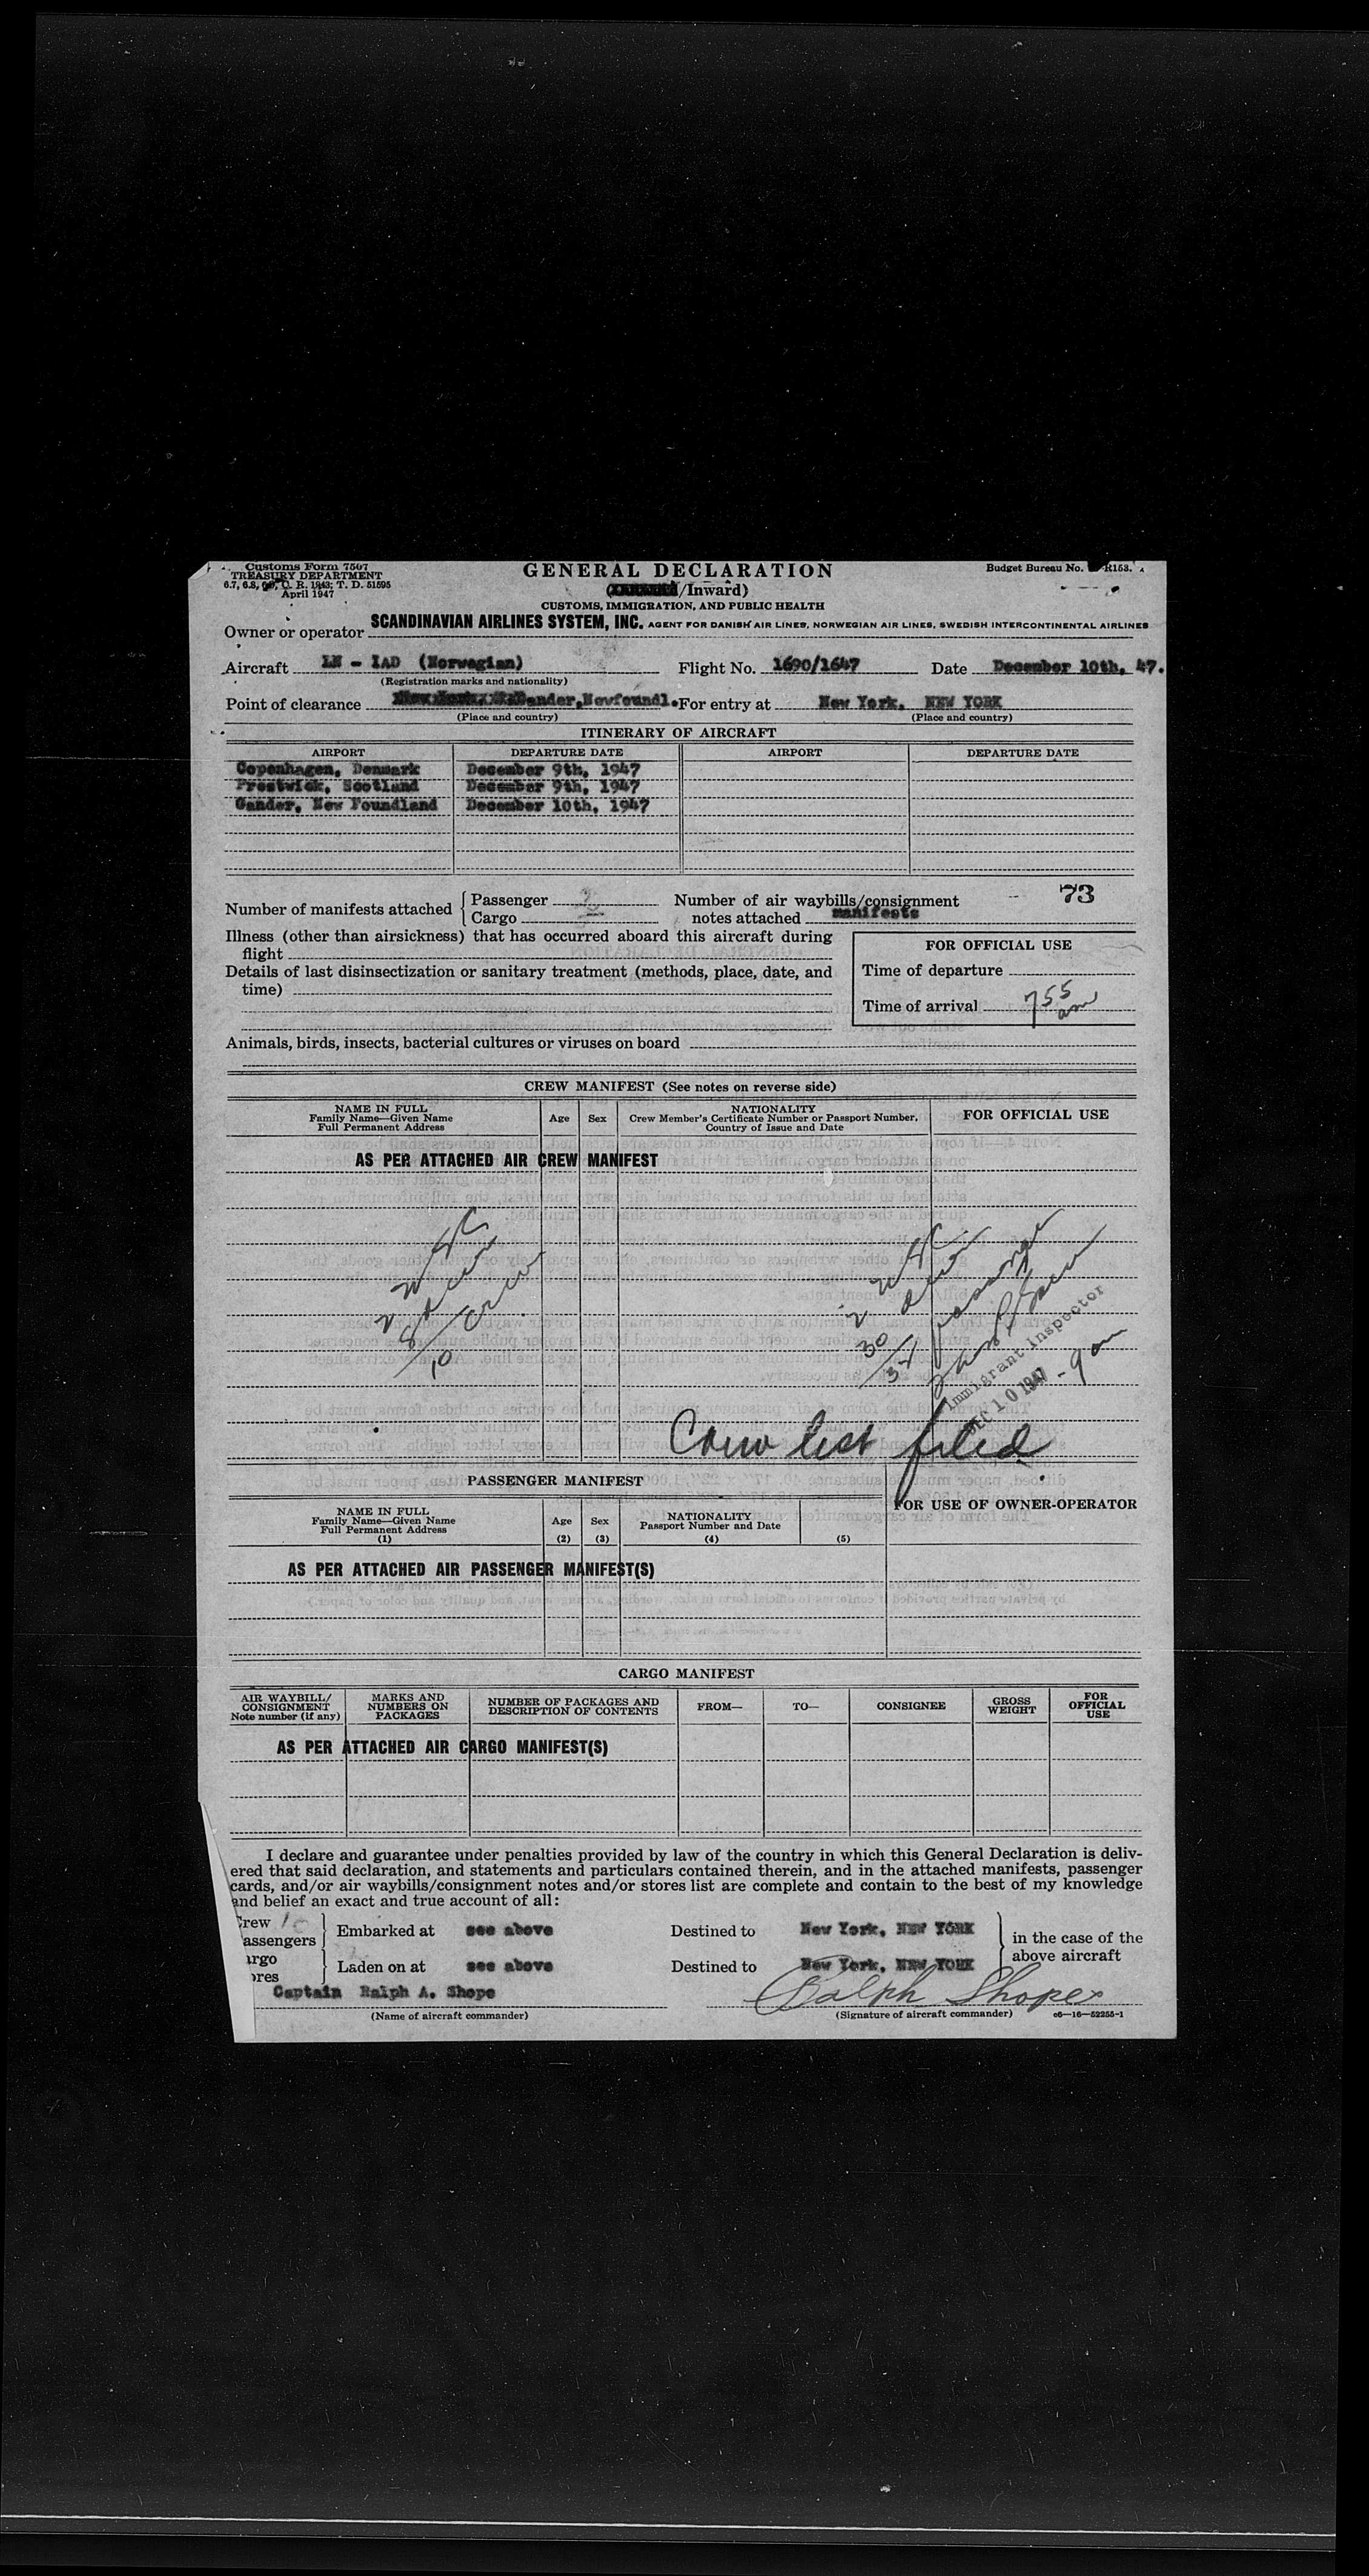 Customs Form 7507
TREASURY DEPARTMENT
6.7, 6.8, C. R. 1943; T. D. 51595
April 1947
GENERAL DECLARATION
/Inward)
CUSTOMS, IMMIGRATION, AND PUBLIC HEALTH
Budget Bureau No. R153.
Owner or operator SCANDINAVIAN AIRLINES SYSTEM, INC. AGENT FOR DANISH AIR LINES, NORWEGIAN AIR LINES, SWEDISH INTERCONTINENTAL AIRLINES
Aircraft LN - IAD (Norwegian) Flight No. 1690/1647 Date December 10th, 47.
(Registration marks and nationality)
Point of clearance Gander, Newfoundl. For entry at New York, NEW YORK
(Place and country) (Place and country)
ITINERARY OF AIRCRAFT
AIRPORT DEPARTURE DATE AIRPORT DEPARTURE DATE
Copenhagen, Denmark December 9th, 1947
Prestwick, Scotland December 9th, 1947
Gander, New Foundland December 10th, 1947
73
Number of manifests attached { Passenger
Cargo
Number of air waybills/consignment
notes attached manifests
Illness (other than airsickness) that has occurred aboard this aircraft during
flight
Details of last disinsectization or sanitary treatment (methods, place, date, and
time)
FOR OFFICIAL USE
Time of departure
Time of arrival 755
am
Animals, birds, insects, bacterial cultures or viruses on board
CREW MANIFEST (See notes on reverse side)
NAME IN FULL
Family Name—Given Name
Full Permanent Address
Age
Sex
NATIONALITY
Crew Member's Certificate Number or Passport Number,
Country of Issue and Date
FOR OFFICIAL USE
AS PER ATTACHED AIR CREW MANIFEST
2 USC
8 alien
10 Crew
2 USC
30 alien
32 passenger
Immigrant Inspector
DEC 10 1947 - 9 am
Crew list filed
PASSENGER MANIFEST
FOR USE OF OWNER-OPERATOR
NAME IN FULL
Family Name—Given Name
Full Permanent Address
(1)
Age
(2)
Sex
(3)
NATIONALITY
Passport Number and Date
(4)
(5)
AS PER ATTACHED AIR PASSENGER MANIFEST(S)
CARGO MANIFEST
AIR WAYBILL/
CONSIGNMENT
Note number (if any)
MARKS AND
NUMBERS ON
PACKAGES
NUMBER OF PACKAGES AND
DESCRIPTION OF CONTENTS
FROM—
TO—
CONSIGNEE
GROSS
WEIGHT
FOR
OFFICIAL
USE
AS PER ATTACHED AIR CARGO MANIFEST(S)
I declare and guarantee under penalties provided by law of the country in which this General Declaration is deliv-
ered that said declaration, and statements and particulars contained therein, and in the attached manifests, passenger
cards, and/or air waybills/consignment notes and/or stores list are complete and contain to the best of my knowledge
and belief an exact and true account of all:
Crew 10
assengers
Embarked at see above Destined to New York, NEW YORK
argo
ores
Laden on at see above Destined to New York, NEW YORK
in the case of the
above aircraft
Captain Ralph A. Shope
(Name of aircraft commander)
Ralph Shope
(Signature of aircraft commander)
c6—16—52255-1